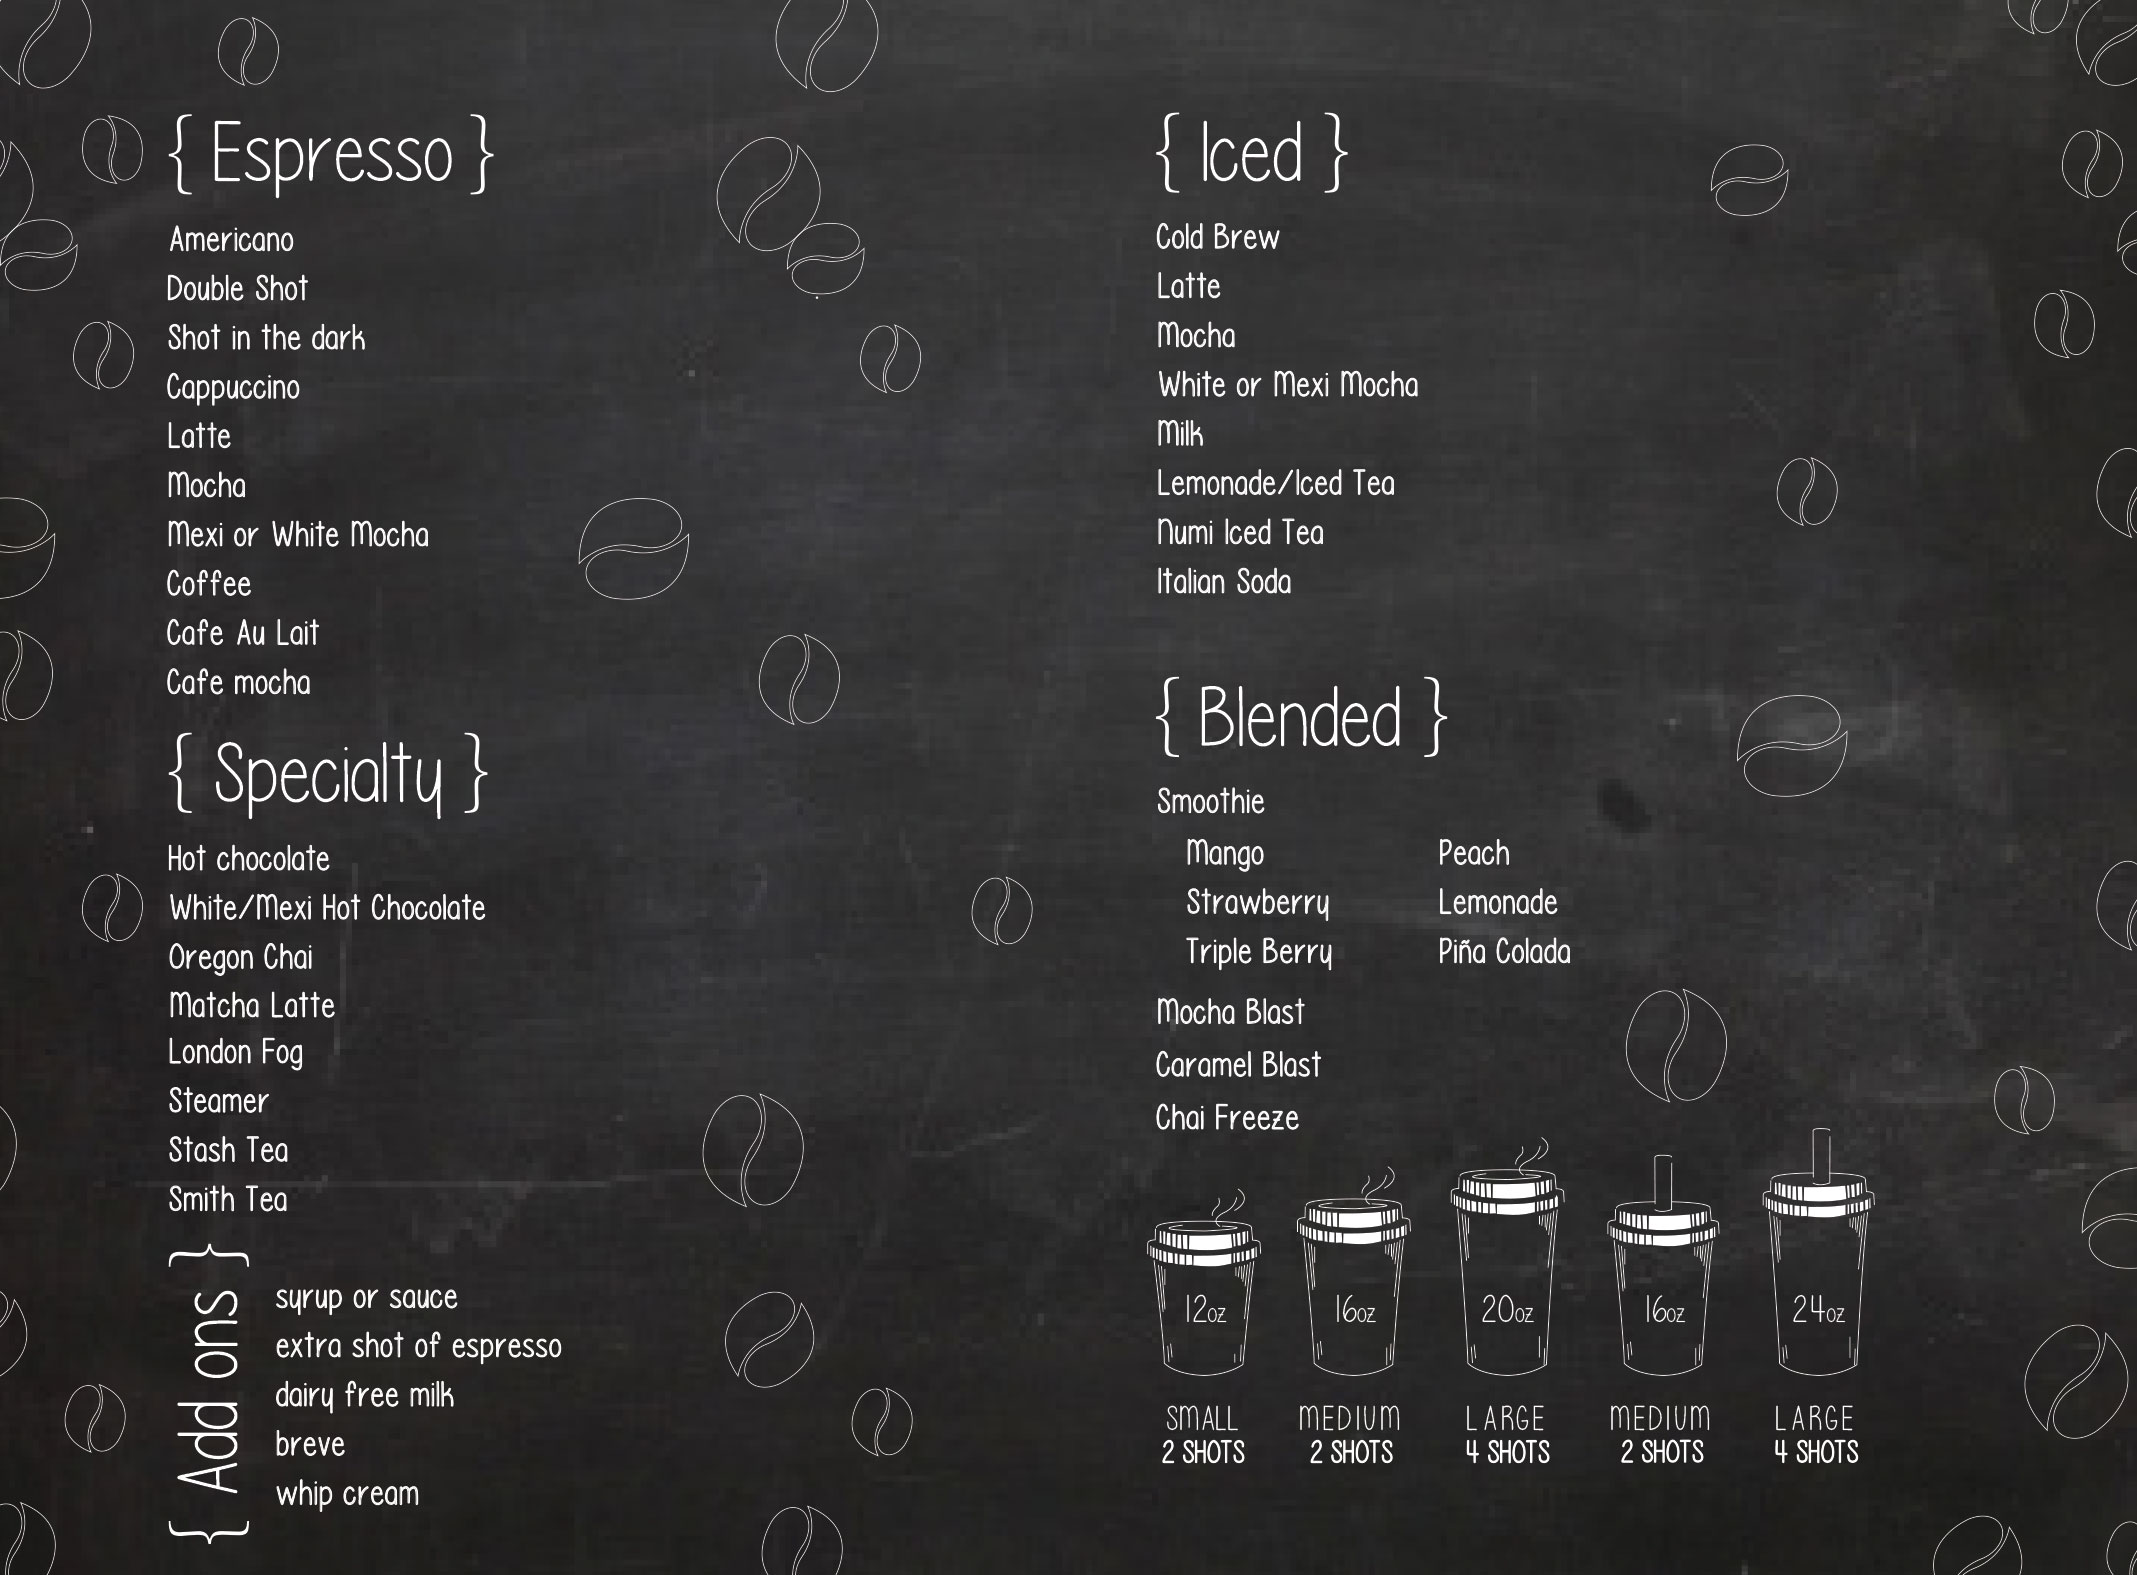 { Espresso }
Americano
Double Shot
Shot in the dark
Cappuccino
Latte
Mocha
Mexi or White Mocha
Coffee
Cafe Au Lait
Cafe mocha
{ Specialty }
Hot chocolate
White/Mexi Hot Chocolate
Oregon Chai
Matcha Latte
London Fog
Steamer
Stash Tea
Smith Tea
{ Add ons }
syrup or sauce
extra shot of espresso
dairy free milk
breve
whip cream
{ Iced }
Cold Brew
Latte
Mocha
White or Mexi Mocha
Milk
Lemonade/Iced Tea
Numi Iced Tea
Italian Soda
{ Blended }
Smoothie
Mango Peach
Strawberry Lemonade
Triple Berry Piña Colada
Mocha Blast
Caramel Blast
Chai Freeze
12oz 16oz 20oz 16oz 24oz
SMALL MEDIUM LARGE MEDIUM LARGE
2 SHOTS 2 SHOTS 4 SHOTS 2 SHOTS 4 SHOTS